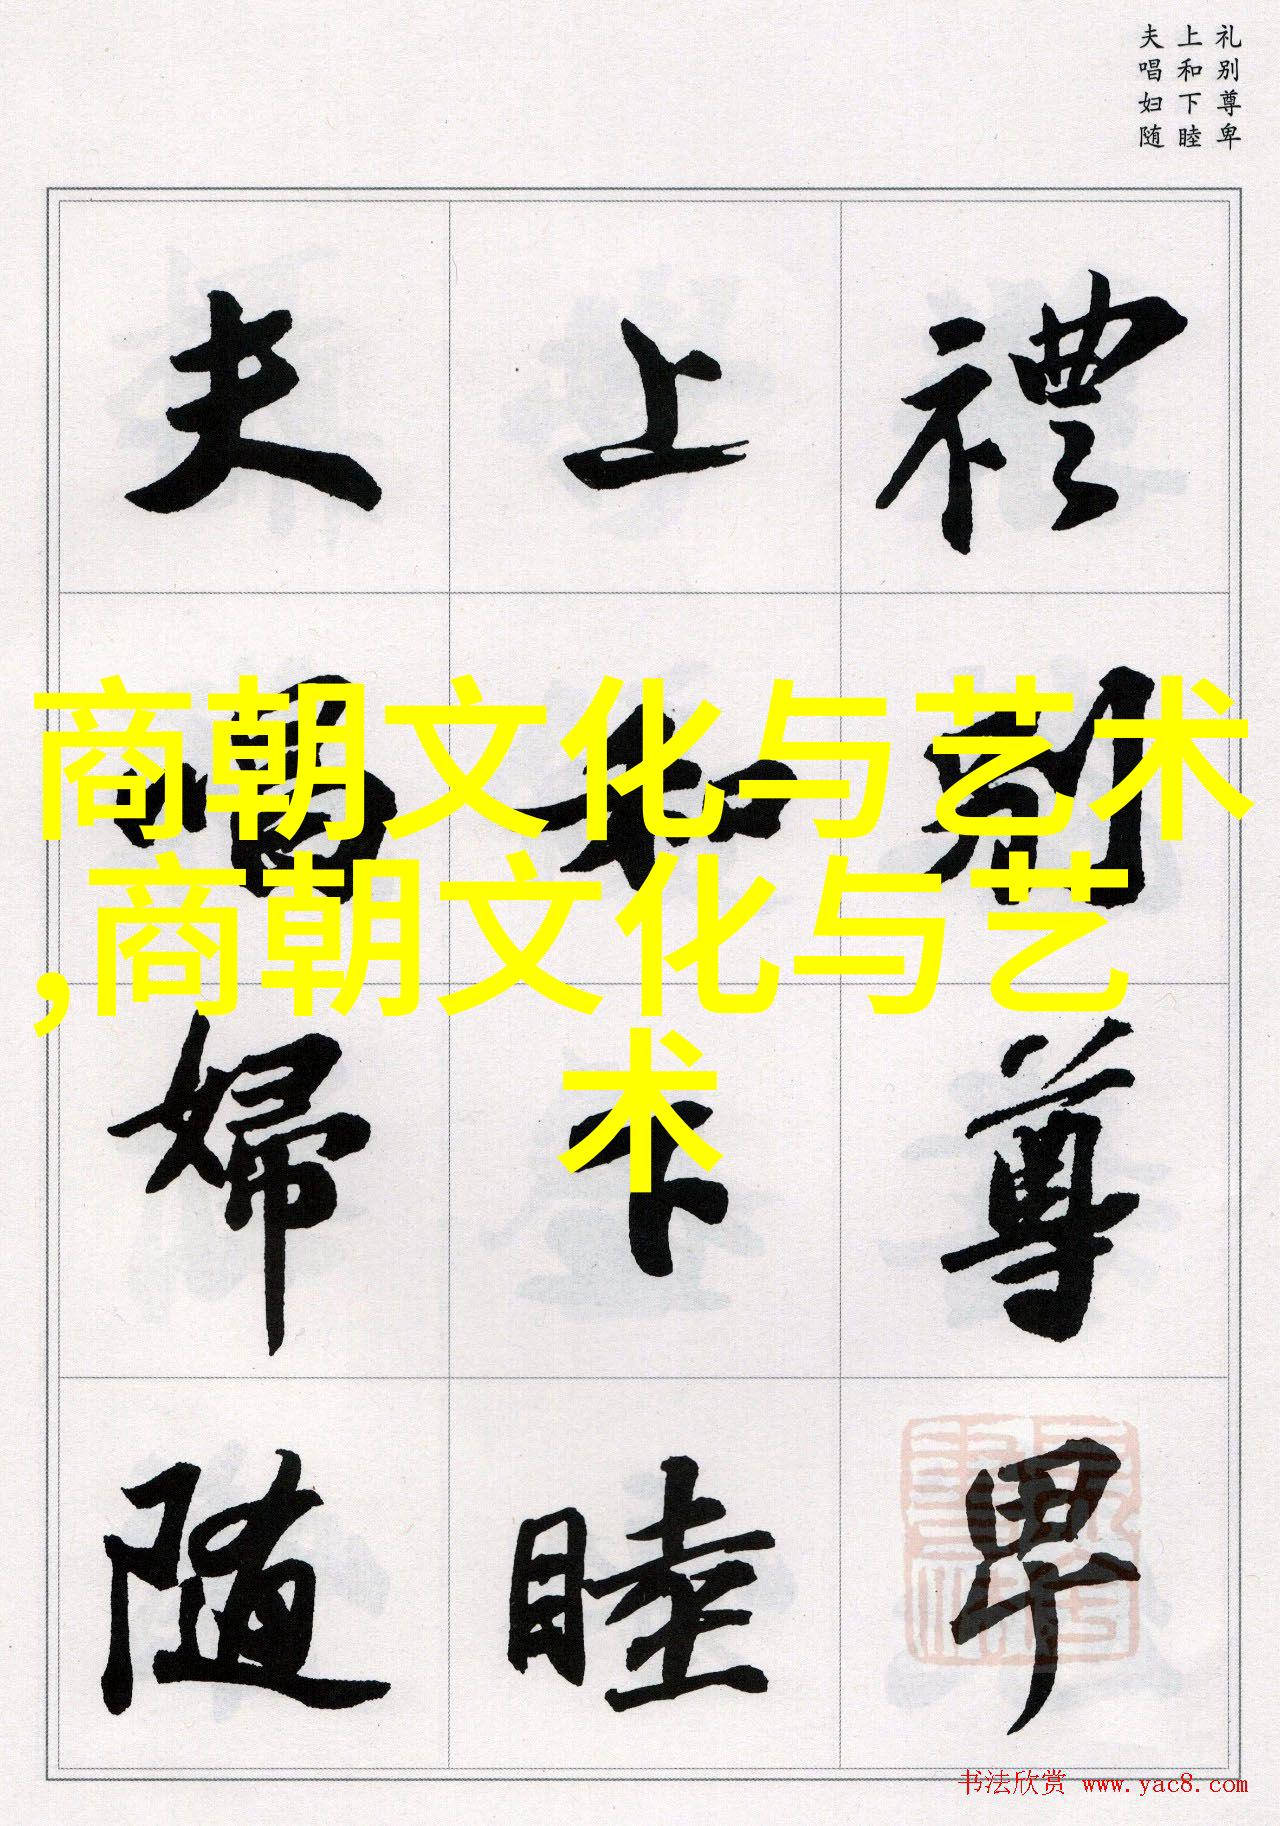 礼别尊卑
上和下睦
夫唱妇随
禮別尊卑
上和下睦
夫唱婦随
商朝文化与艺术
,商朝文化与艺
术
书法欣赏 www.yac8.com